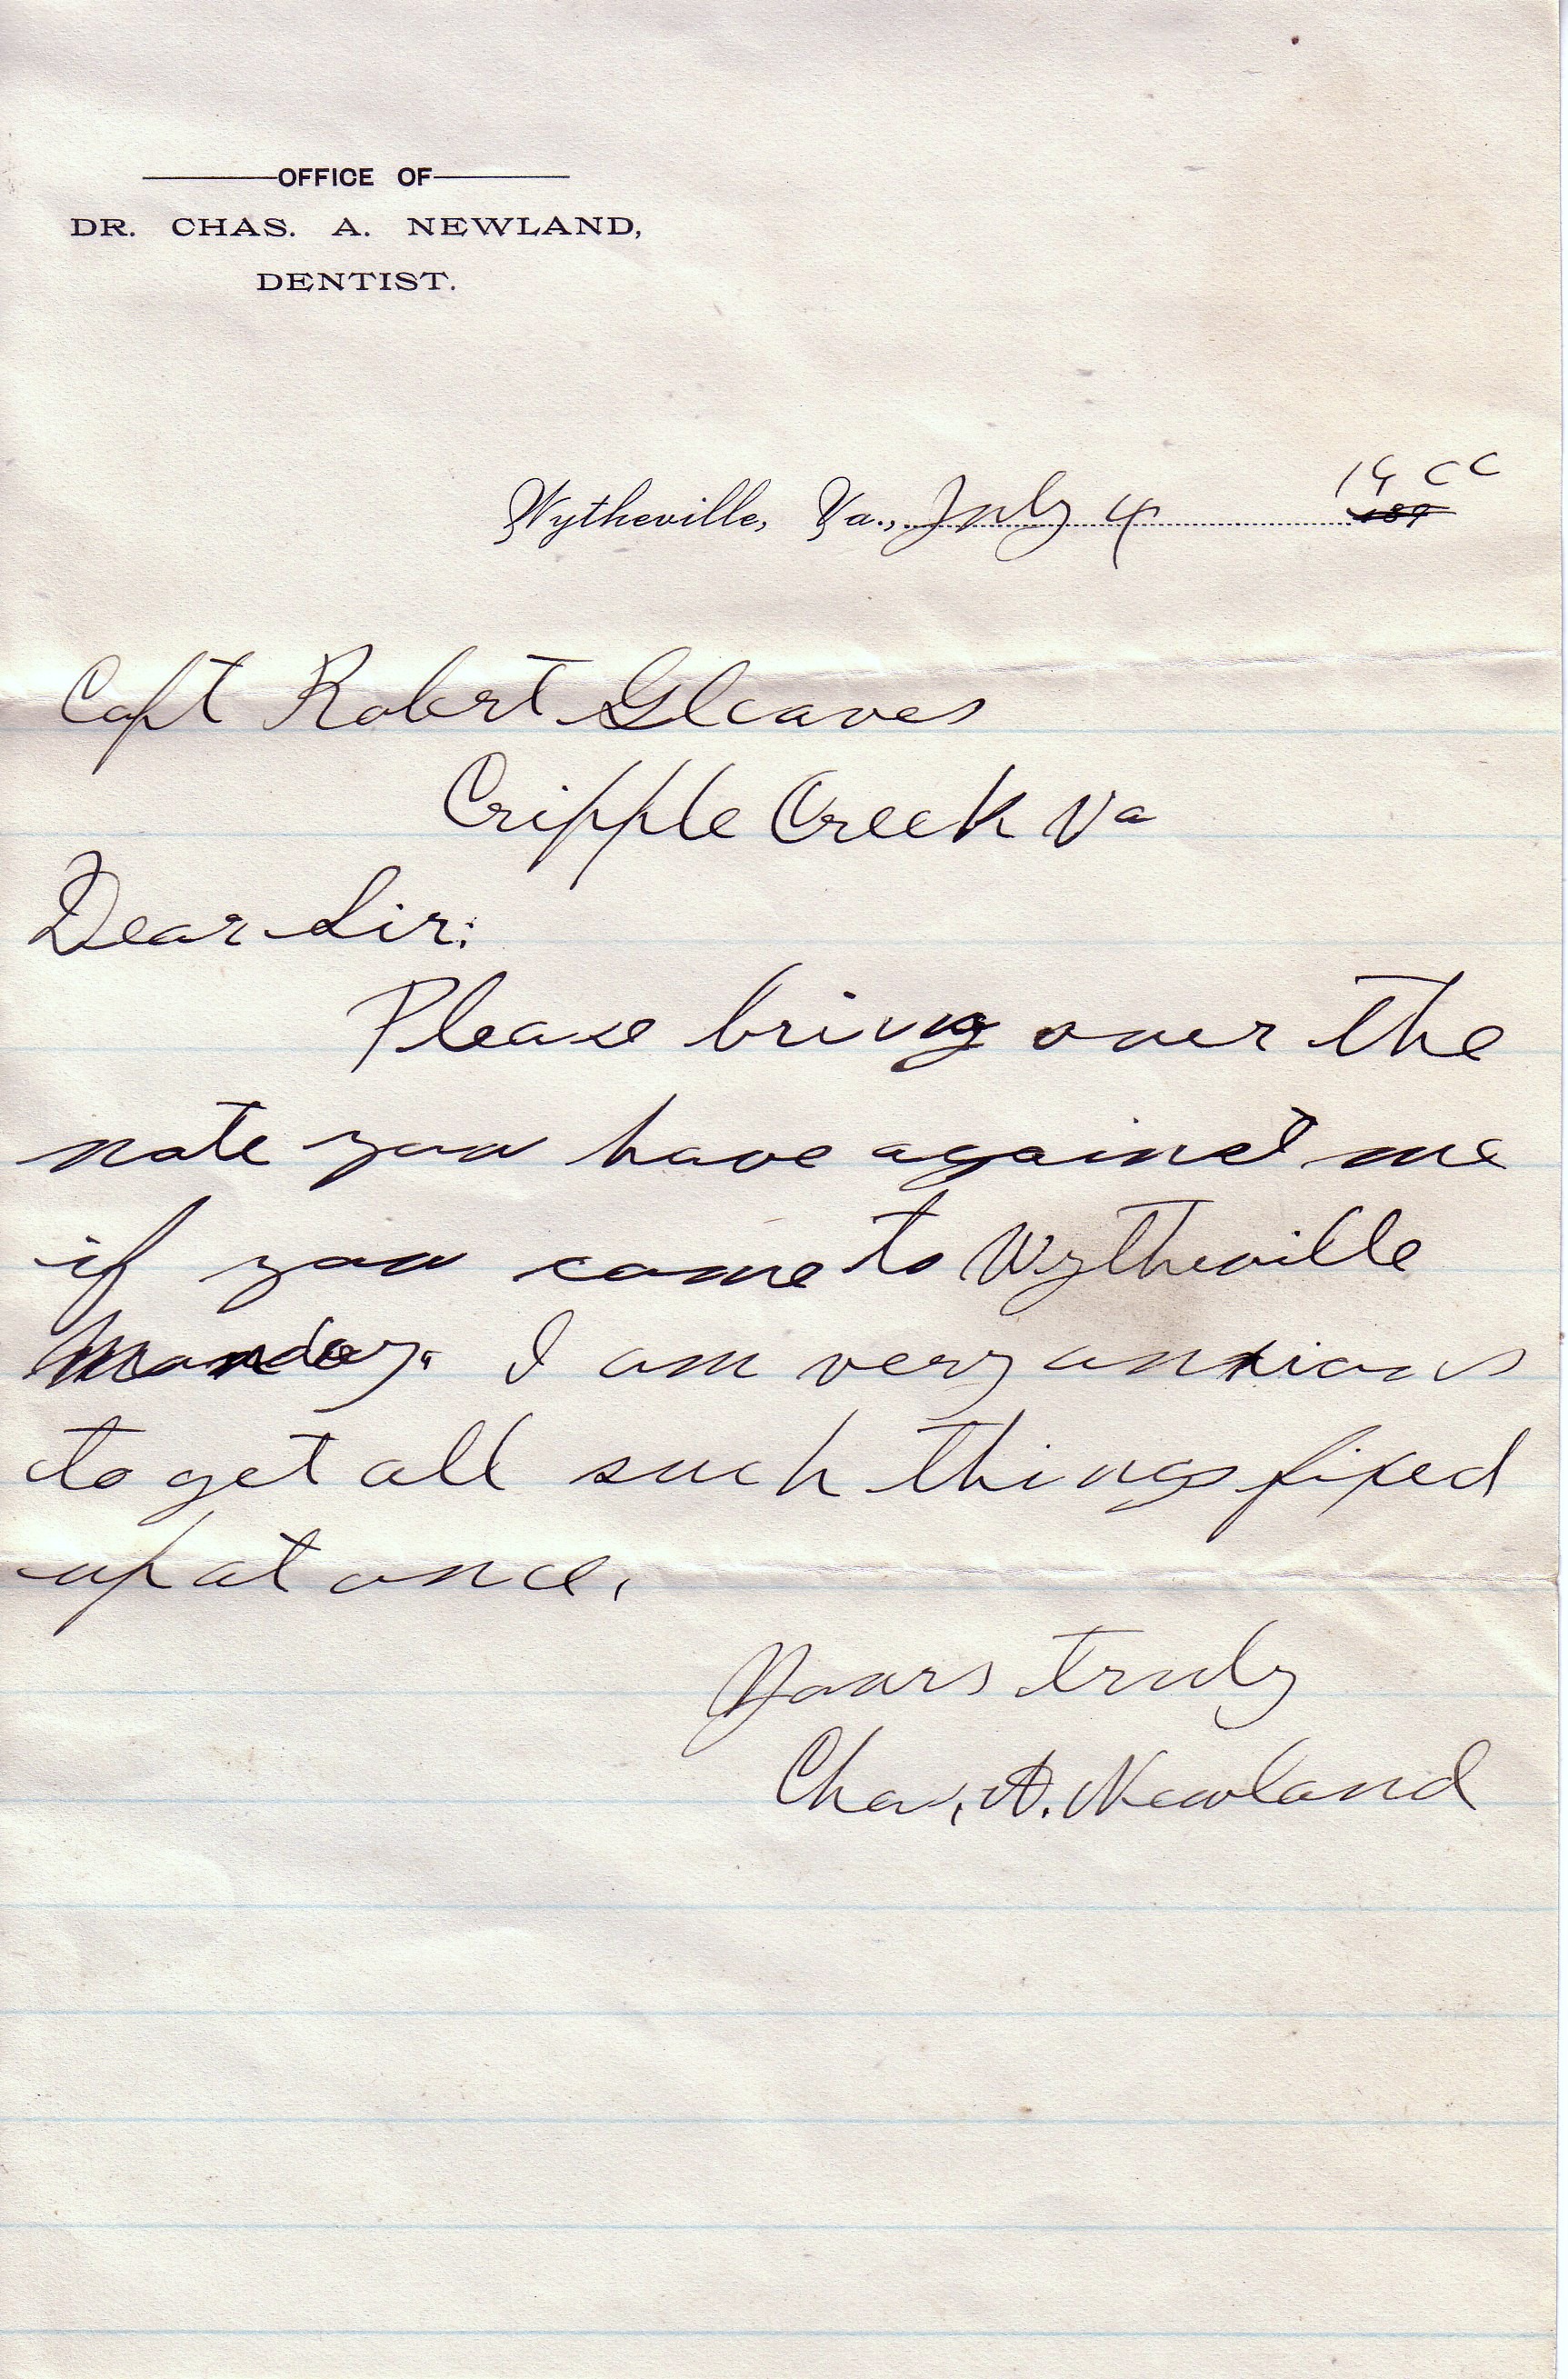 OFFICE OF
DR. CHAS. A. NEWLAND,
DENTIST.
1900
Wytheville, Va., July 4 189
Capt Robert Gleaves
Cripple Creek Va
Dear Sir:
Please bring over the
note you have against me
if you come to Wytheville
Monday. I am very anxious
to get all such things fixed
up at once.
Yours truly
Chas. A. Newland